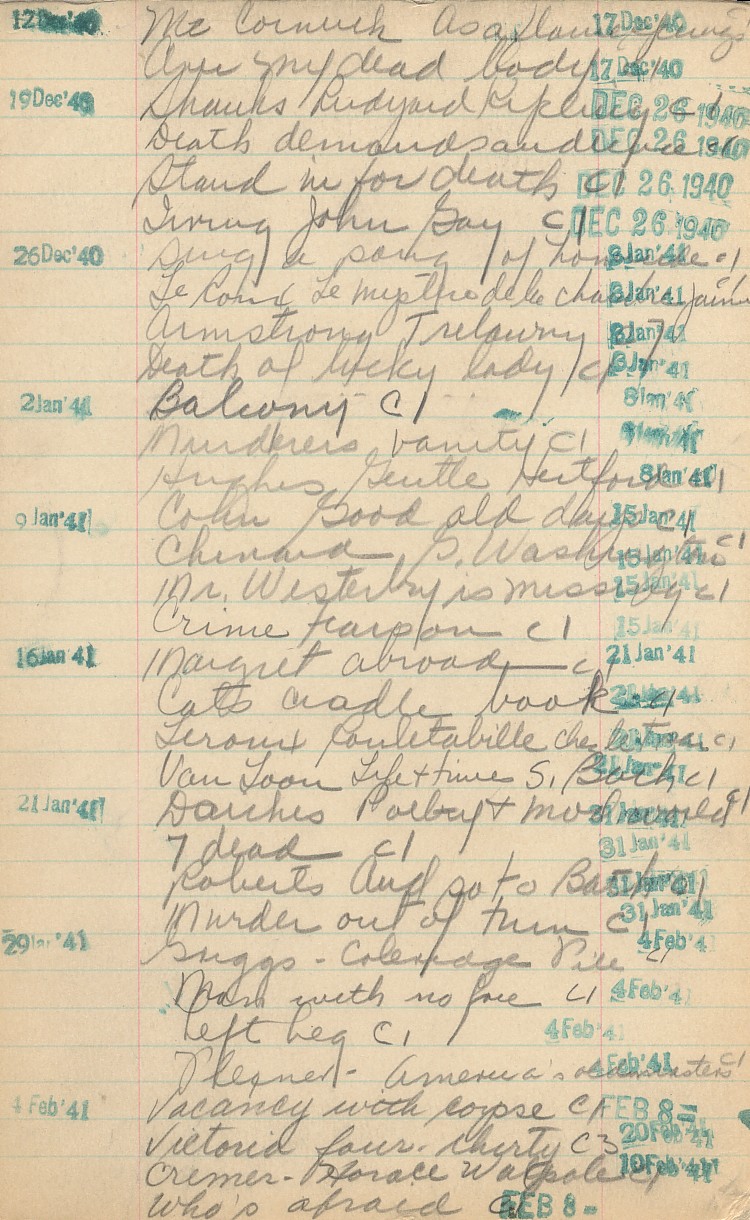 17 Dec '40 Mc Cormick As a 17 Dec '40
Over my dead body c1 17 Dec '40
19 Dec '40 Shanks Rudyard Kipling c1 DEC 26 1940
Death demands audience c1 DEC 26 1940
Stand in for death c1 DEC 26 1940
Irving John Gay c1 DEC 26 1940
26 Dec '40 Sing a song of homicide c1 8 Jan '41
Le mystère de la chambre jaune 8 Jan '41
Armstrong Trelawny 8 Jan '41
Death of lucky lady c1 8 Jan '41
2 Jan '41 Balcony c1 8 Jan '41
Murderers vanity c1 8 Jan '41
Hughes Gentle Hertford c1 8 Jan '41
9 Jan '41 Cohn Good old days c1 15 Jan '41
Chinard G. Washington c1 15 Jan '41
Mr. Westerby is missing c1 15 Jan '41
Crime c1 15 Jan '41
16 Jan '41 Maigret abroad c1 21 Jan '41
Cats cradle book c1 21 Jan '41
Leroux Rouletabille chez le tsar c1 21 Jan '41
Van Loon Life + times S. Bach c1 21 Jan '41
21 Jan '41 Daiches Poetry + modern world c1 31 Jan '41
7 dead c1 31 Jan '41
Roberts And so to Bath c1 31 Jan '41
Murder out of turn c1 31 Jan '41
29 Jan '41 Griggs - Coleridge c1 4 Feb '41
Man with no face c1 4 Feb '41
Left leg c1 4 Feb '41
Plesner - America's c1 4 Feb '41
4 Feb '41 Vacancy with corpse c1 FEB 8 =
Victoria four-thirty c3 20 Feb '41
Cremer - Horace Walpole c1 10 Feb '41
Who's afraid c1 FEB 8 =